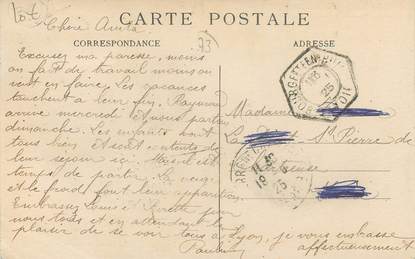 Lot
CARTE POSTALE
CORRESPONDANCE
ADRESSE
93
Chère Anita
Excusez ma paresse, moins
on fait de travail moins on
veut en faire. Les vacances
touchent à leur fin. Raymond
arrive mercredi et nous partons
dimanche. Les enfants sont
tous bien et sont contents de
leur séjour ici. Mais il est
temps de partir. La neige
et le froid font leur apparition.
Embrassez Louis et pour
nous tous et en attendant le
plaisir de se voir tous à Lyon, je vous embrasse
affectueusement
Madame
La St Pierre de